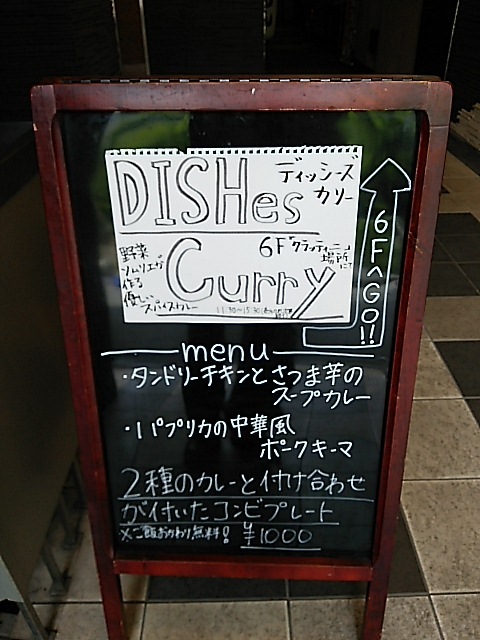 DISHes
ディッシーズ
カリー
Curry
6F「クラッティーニ」
場所にて
野菜
ソムリエが
作る
優しい
スパイスカレー
11:30〜15:30
6F へ GO!!
menu
・タンドリーチキンとさつま芋の
スープカレー
・パプリカの中華風
ポークキーマ
2種のカレーと付け合わせ
が付いたコンビプレート
※ご飯おかわり無料! ¥1000